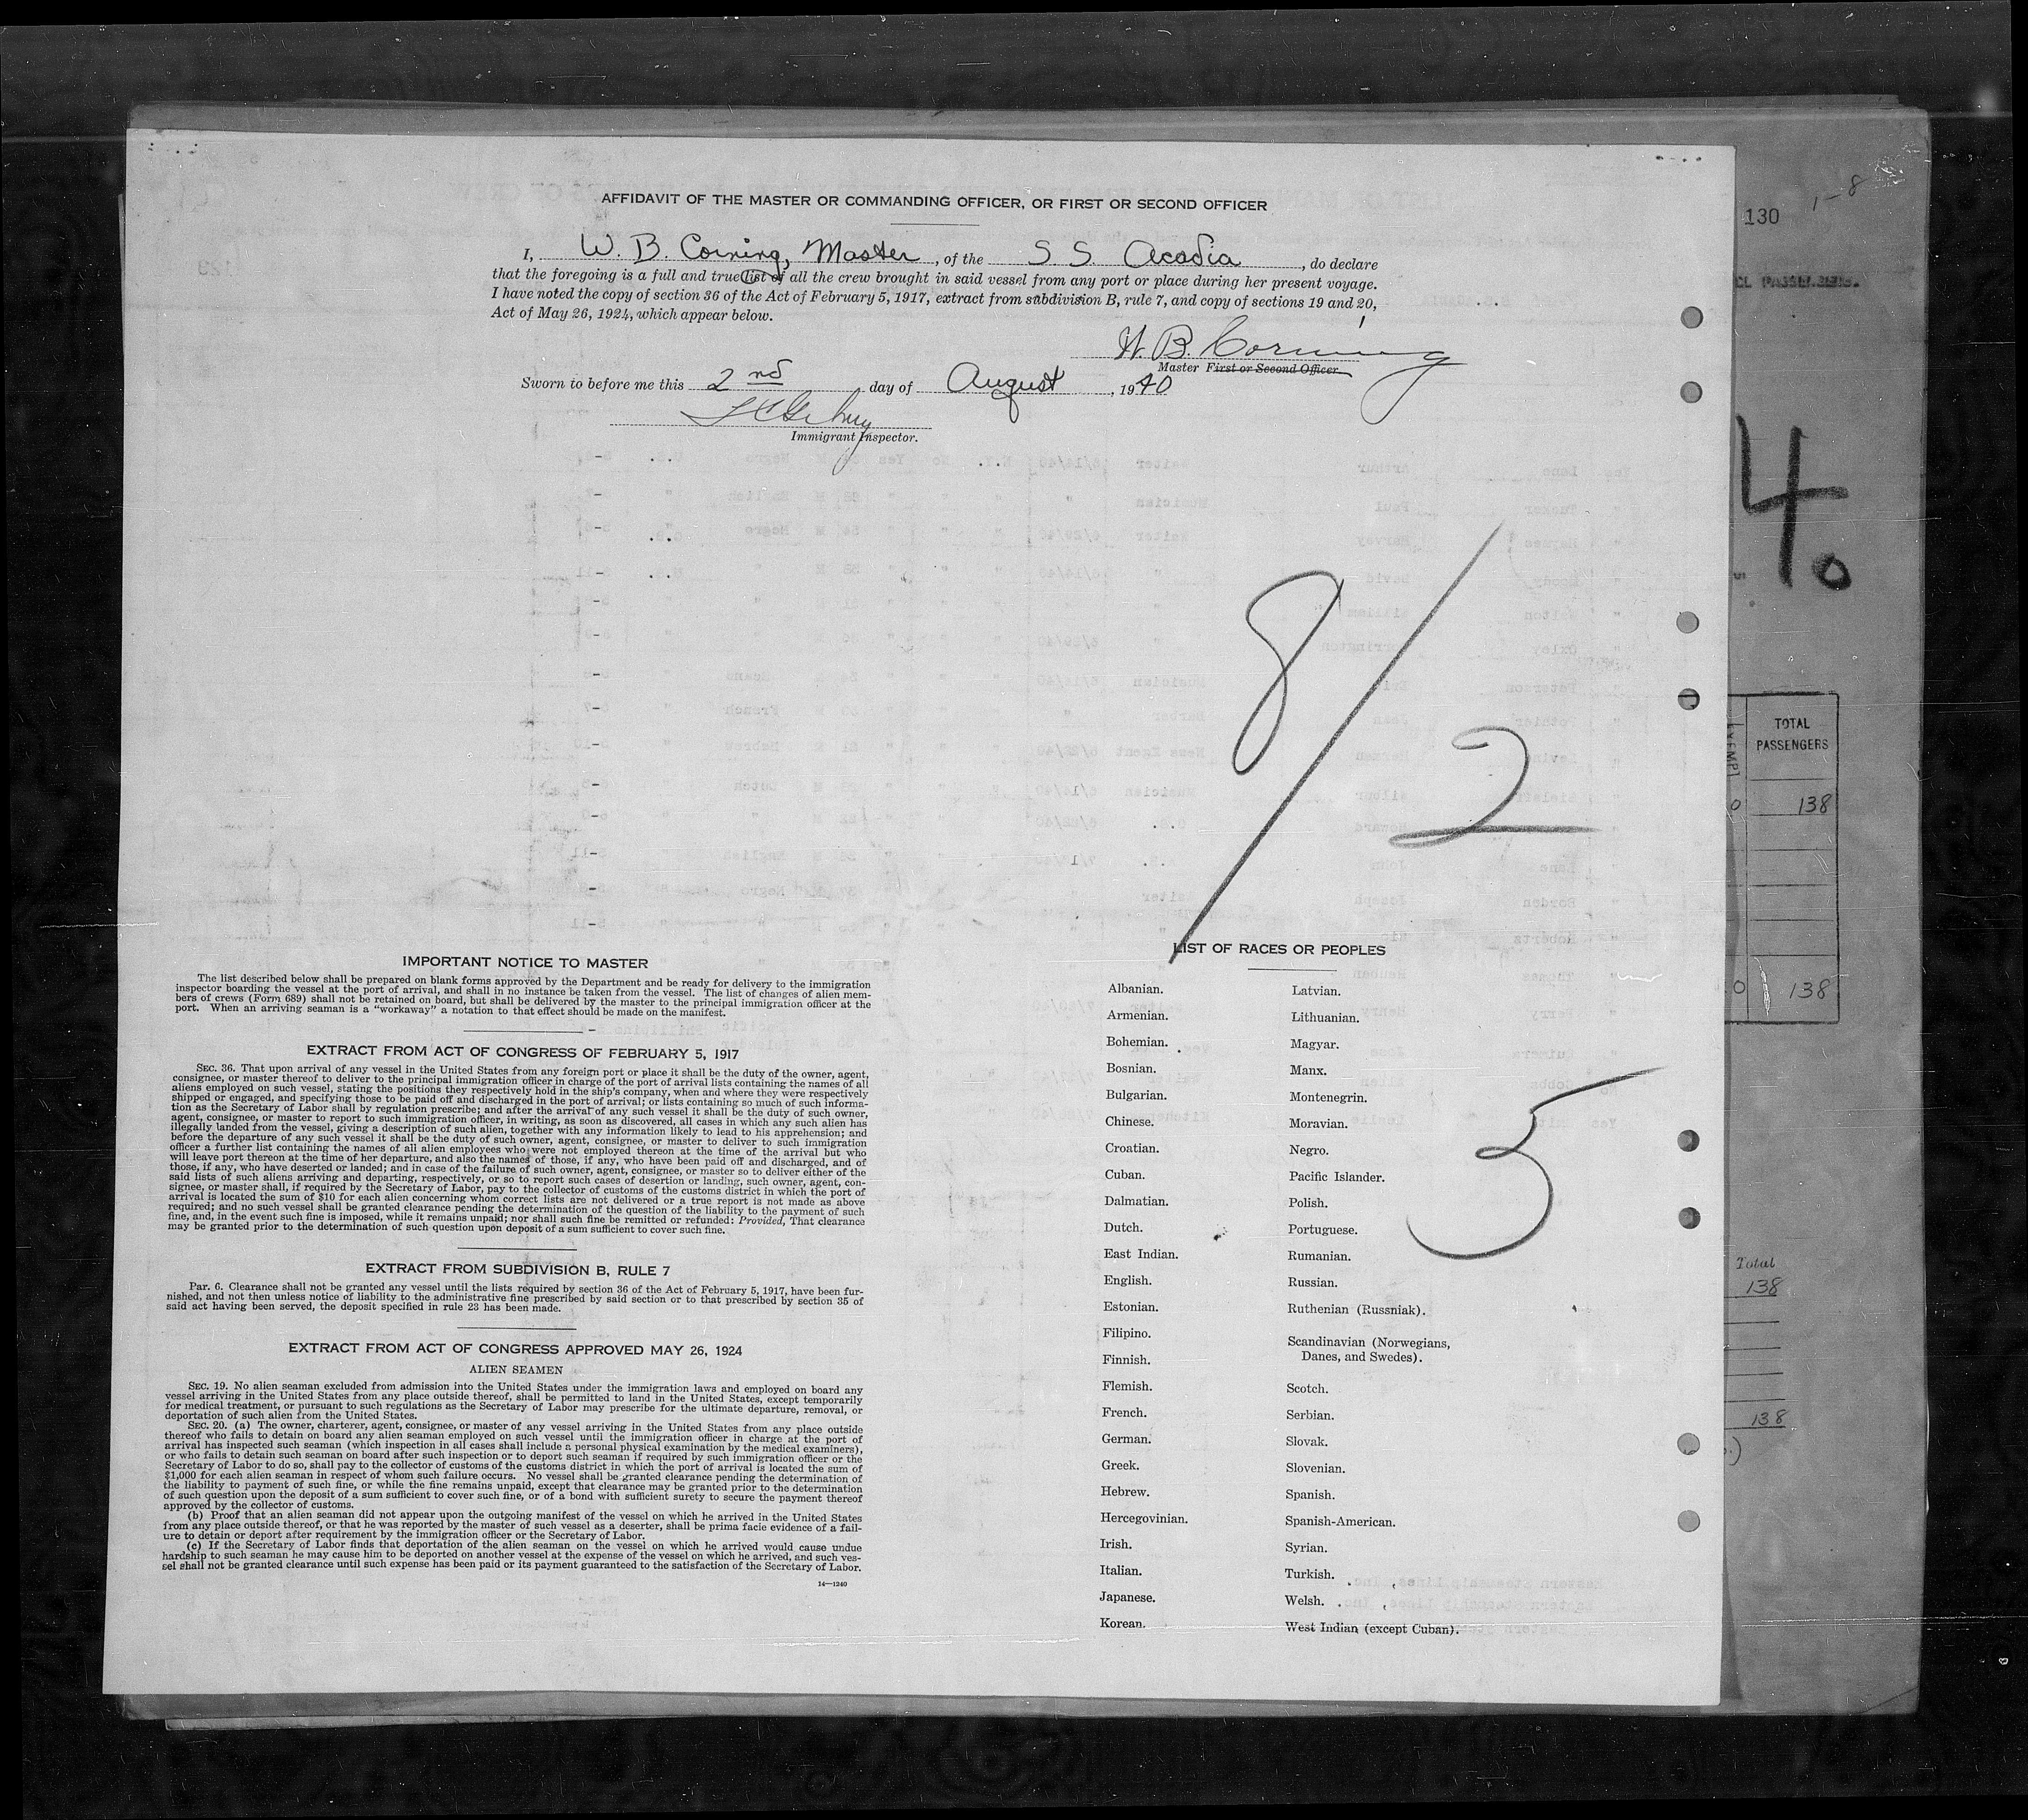 AFFIDAVIT OF THE MASTER OR COMMANDING OFFICER, OR FIRST OR SECOND OFFICER
I, W. B. Corning, Master, of the S S. Acadia, do declare
that the foregoing is a full and true list of all the crew brought in said vessel from any port or place during her present voyage.
I have noted the copy of section 36 of the Act of February 5, 1917, extract from subdivision B, rule 7, and copy of sections 19 and 20,
Act of May 26, 1924, which appear below.
W. B. Corning
Master First or Second Officer.
Sworn to before me this 2nd day of August, 1940
Immigrant Inspector.
8/2
5
IMPORTANT NOTICE TO MASTER
The list described below shall be prepared on blank forms approved by the Department and be ready for delivery to the immigration
inspector boarding the vessel at the port of arrival, and shall in no instance be taken from the vessel. The list of changes of alien mem-
bers of crews (Form 689) shall not be retained on board, but shall be delivered by the master to the principal immigration officer at the
port. When an arriving seaman is a "workaway" a notation to that effect should be made on the manifest.
EXTRACT FROM ACT OF CONGRESS OF FEBRUARY 5, 1917
SEC. 36. That upon arrival of any vessel in the United States from any foreign port or place it shall be the duty of the owner, agent,
consignee, or master thereof to deliver to the principal immigration officer in charge of the port of arrival lists containing the names of all
aliens employed on such vessel, stating the positions they respectively hold in the ship's company, when and where they were respectively
shipped or engaged, and specifying those to be paid off and discharged in the port of arrival; or lists containing so much of such informa-
tion as the Secretary of Labor shall by regulation prescribe; and after the arrival of any such vessel it shall be the duty of such owner,
agent, consignee, or master to report to such immigration officer, in writing, as soon as discovered, all cases in which any such alien has
illegally landed from the vessel, giving a description of such alien, together with any information likely to lead to his apprehension; and
before the departure of any such vessel it shall be the duty of such owner, agent, consignee, or master to deliver to such immigration
officer a further list containing the names of all alien employees who were not employed thereon at the time of the arrival but who
will leave port thereon at the time of her departure, and also the names of those, if any, who have been paid off and discharged, and of
those, if any, who have deserted or landed; and in case of the failure of such owner, agent, consignee, or master so to deliver either of the
said lists of such aliens arriving and departing, respectively, or so to report such cases of desertion or landing, such owner, agent, con-
signee, or master shall, if required by the Secretary of Labor, pay to the collector of customs of the customs district in which the port of
arrival is located the sum of $10 for each alien concerning whom correct lists are not delivered or a true report is not made as above
required; and no such vessel shall be granted clearance pending the determination of the question of the liability to the payment of such
fine, and, in the event such fine is imposed, while it remains unpaid; nor shall such fine be remitted or refunded: Provided, That clearance
may be granted prior to the determination of such question upon deposit of a sum sufficient to cover such fine.
EXTRACT FROM SUBDIVISION B, RULE 7
Par. 6. Clearance shall not be granted any vessel until the lists required by section 36 of the Act of February 5, 1917, have been fur-
nished, and not then unless notice of liability to the administrative fine prescribed by said section or to that prescribed by section 35 of
said act having been served, the deposit specified in rule 23 has been made.
EXTRACT FROM ACT OF CONGRESS APPROVED MAY 26, 1924
ALIEN SEAMEN
SEC. 19. No alien seaman excluded from admission into the United States under the immigration laws and employed on board any
vessel arriving in the United States from any place outside thereof, shall be permitted to land in the United States, except temporarily
for medical treatment, or pursuant to such regulations as the Secretary of Labor may prescribe for the ultimate departure, removal, or
deportation of such alien from the United States.
SEC. 20. (a) The owner, charterer, agent, consignee, or master of any vessel arriving in the United States from any place outside
thereof who fails to detain on board any alien seaman employed on such vessel until the immigration officer in charge at the port of
arrival has inspected such seaman (which inspection in all cases shall include a personal physical examination by the medical examiners),
or who fails to detain such seaman on board after such inspection or to deport such seaman if required by such immigration officer or the
Secretary of Labor to do so, shall pay to the collector of customs of the customs district in which the port of arrival is located the sum of
$1,000 for each alien seaman in respect of whom such failure occurs. No vessel shall be granted clearance pending the determination of
the liability to payment of such fine, or while the fine remains unpaid, except that clearance may be granted prior to the determination
of such question upon the deposit of a sum sufficient to cover such fine, or of a bond with sufficient surety to secure the payment thereof
approved by the collector of customs.
(b) Proof that an alien seaman did not appear upon the outgoing manifest of the vessel on which he arrived in the United States
from any place outside thereof, or that he was reported by the master of such vessel as a deserter, shall be prima facie evidence of a fail-
ure to detain or deport after requirement by the immigration officer or the Secretary of Labor.
(c) If the Secretary of Labor finds that deportation of the alien seaman on the vessel on which he arrived would cause undue
hardship to such seaman he may cause him to be deported on another vessel at the expense of the vessel on which he arrived, and such ves-
sel shall not be granted clearance until such expense has been paid or its payment guaranteed to the satisfaction of the Secretary of Labor.
14—1240
LIST OF RACES OR PEOPLES
Albanian.
Armenian.
Bohemian.
Bosnian.
Bulgarian.
Chinese.
Croatian.
Cuban.
Dalmatian.
Dutch.
East Indian.
English.
Estonian.
Filipino.
Finnish.
Flemish.
French.
German.
Greek.
Hebrew.
Hercegovinian.
Irish.
Italian.
Japanese.
Korean.
Latvian.
Lithuanian.
Magyar.
Manx.
Montenegrin.
Moravian.
Negro.
Pacific Islander.
Polish.
Portuguese.
Rumanian.
Russian.
Ruthenian (Russniak).
Scandinavian (Norwegians,
Danes, and Swedes).
Scotch.
Serbian.
Slovak.
Slovenian.
Spanish.
Spanish-American.
Syrian.
Turkish.
Welsh.
West Indian (except Cuban).
130
1-8
4.
TOTAL
PASSENGERS
0 138
0 138
Total
138
138